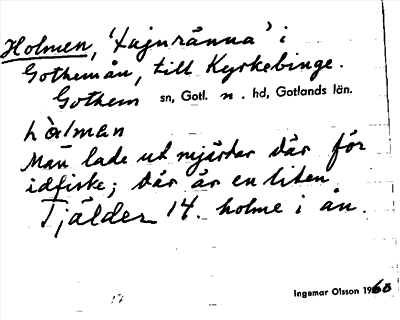 Holmen, 'tujnränna' i
Gotheman, till Kyrkebinge.
Gothem sn, Gotl. n. hd, Gotlands län.
hòlman
Man lade ut mjärdar där för
idfiske; där är en liten
Tjälder 14. holme i ån.
Ingemar Olsson 1965